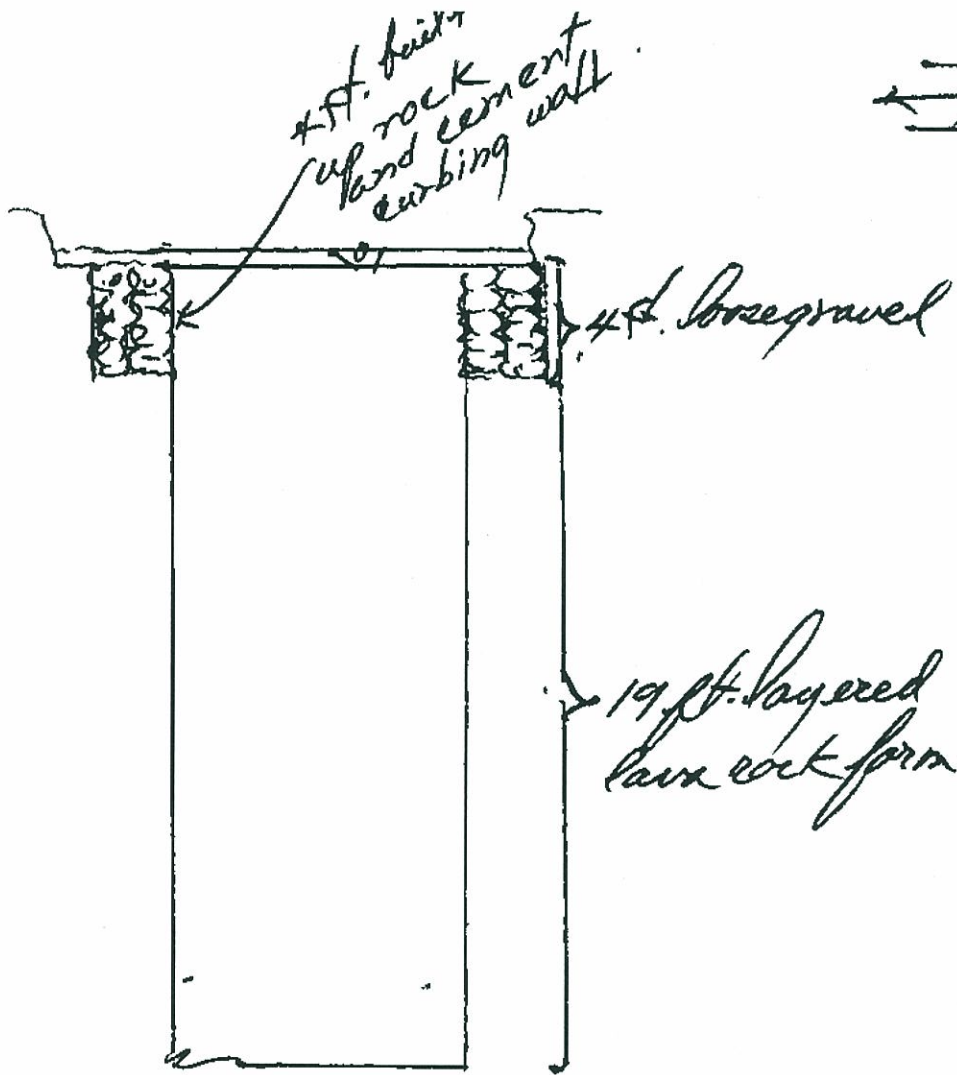 4 ft. built
up rock
and cement
curbing wall
4 ft. loose gravel
19 ft. layered
lava rock form